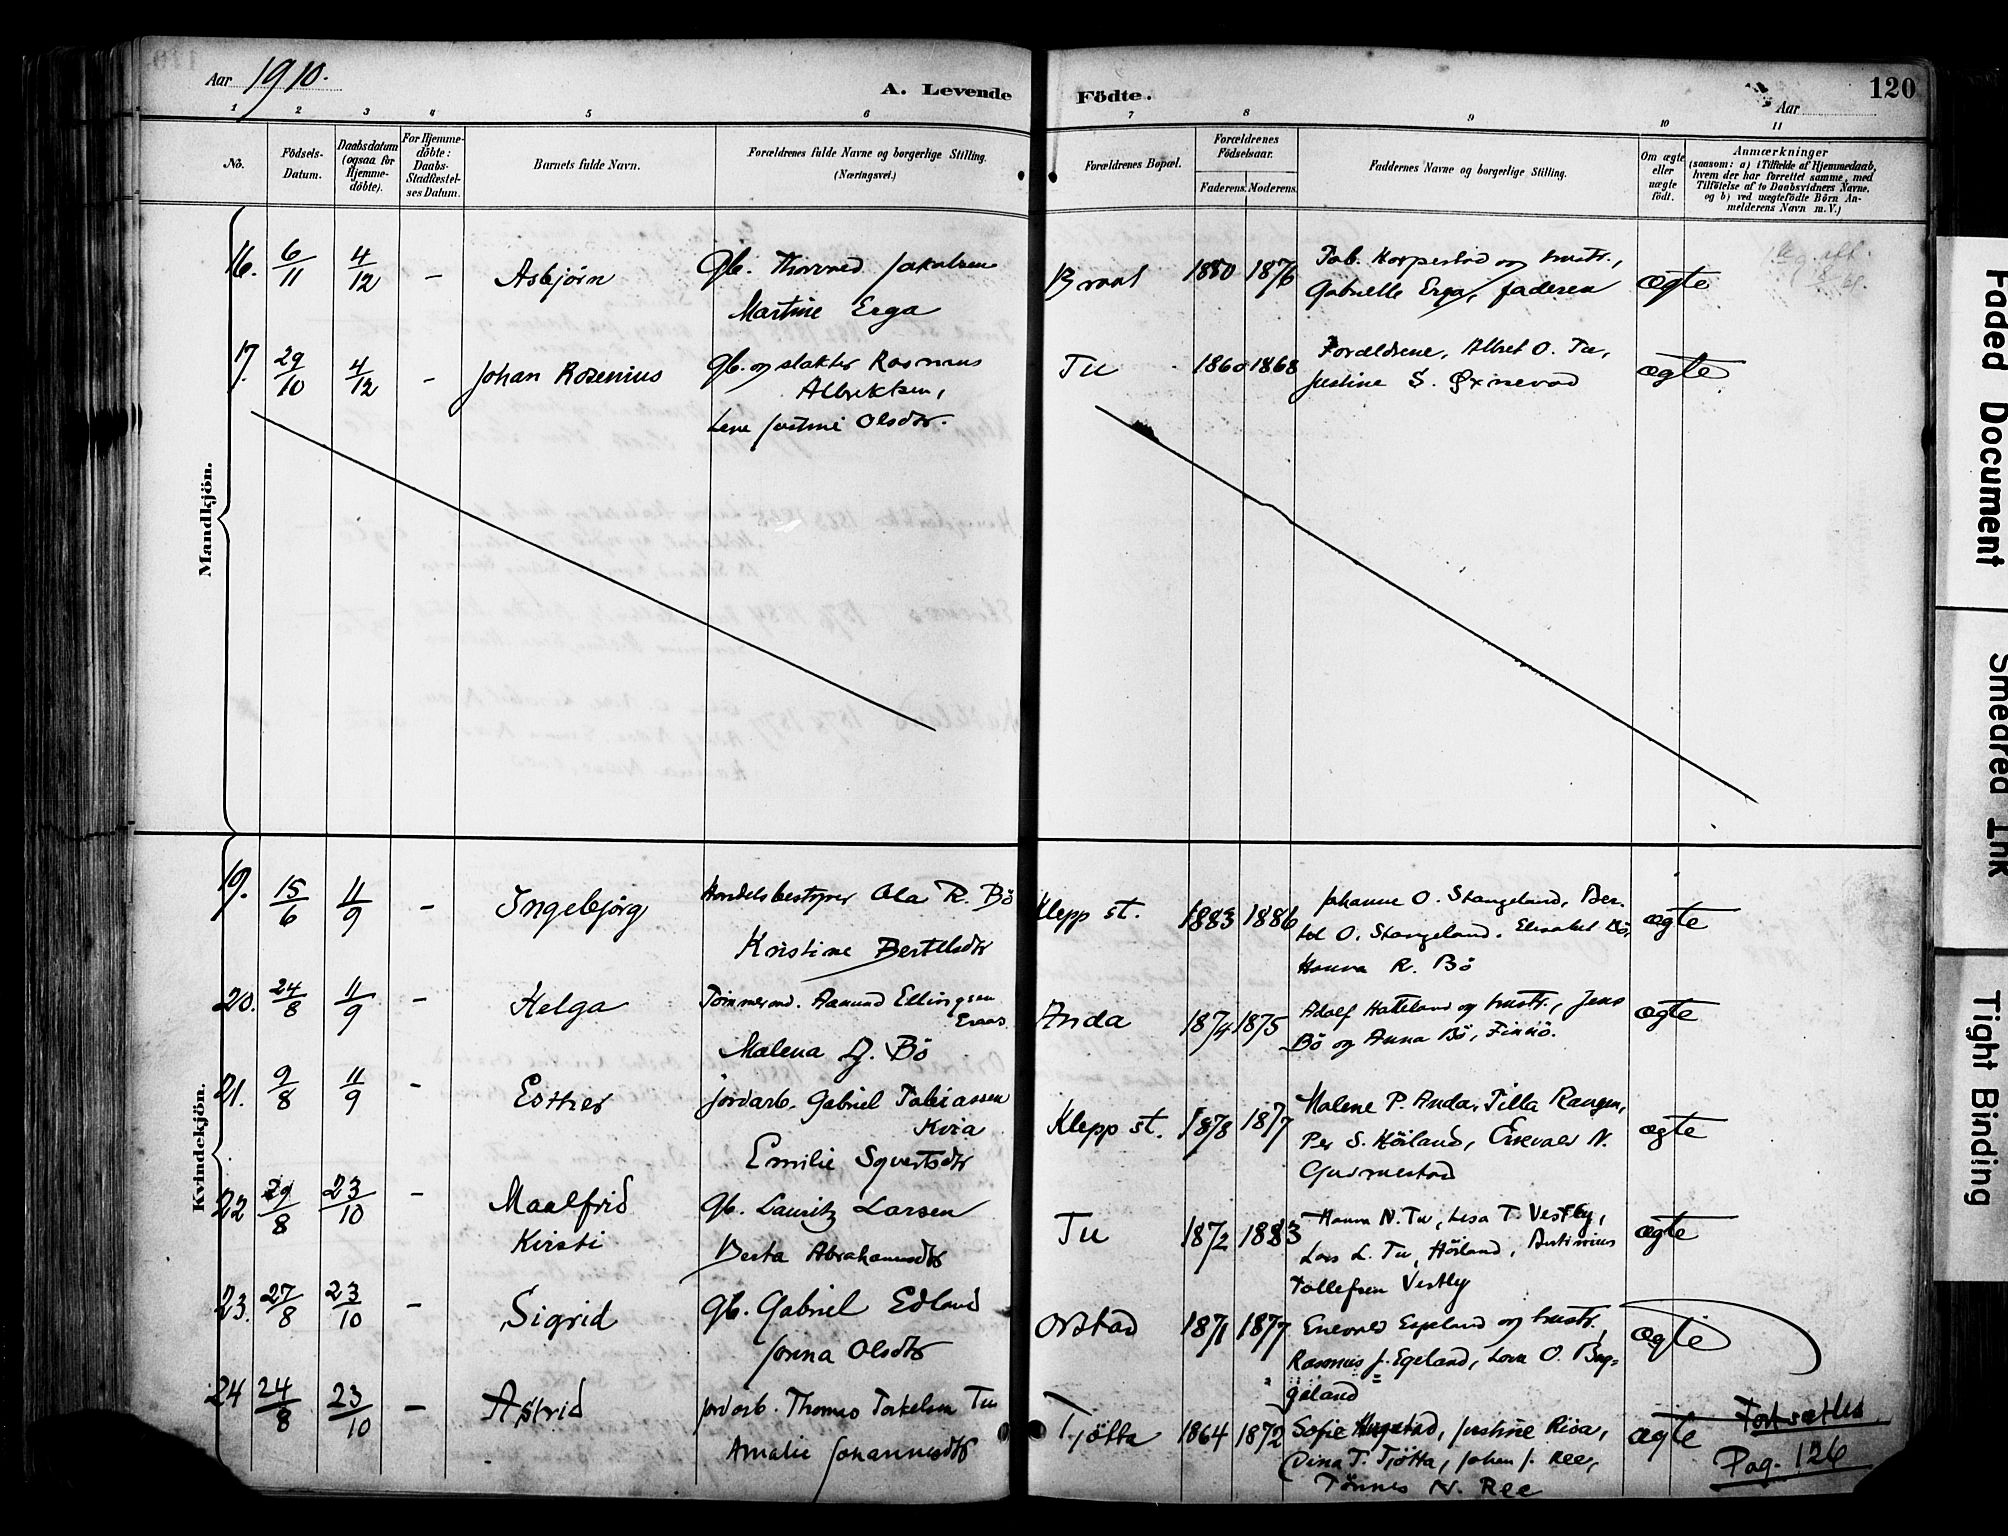 Aar 1910.
A. Levende Födte.
Aar
120
1 2 3 4 5 6 7 8 9 10 11
No.
Födsels-Datum.
Daabsdatum (ogsaa for Hjemmedöbte).
For Hjemmedöbte: Daabs-Stadfæstelses Datum.
Barnets fulde Navn.
Forældrenes fulde Navne og borgerlige Stilling. (Næringsvei.)
Forældrenes Bopæl.
Forældrenes Födselsaar.
Faderens. Moderens.
Faddernes Navne og borgerlige Stilling.
Om ægte eller uægte födt.
Anmærkninger
(saasom: a) i Tilfælde af Hjemmedaab, hvem der har forrettet samme, med Tilföielse af to Daabsvidners Navne, og b) ved uægtefödte Börn Anmelderens Navn m. V.)
Mandkjön.
16. 6/11 4/12 – Asbjörn Gb. Thorvald Jakobsen
Martine Erga
Braut 1880 1876 Tob. Korpestad og hustr.,
Gabrielle Erga, faderen
ægte
17. 29/10 4/12 – Johan Rosenius Gb. og slakter Rasmus
Albrektsen,
Lene Justine Olsdtr.
Tu 1860 1868 Forældrene, Albret O. Tu,
Justine S. Öxnevad
ægte
Kvindekjön.
19. 15/6 11/9 – Ingebjörg Handelsbestyrer Ola R. Bö
Kristine Bertelsdtr
Klepp st. 1883 1886 Johanne O. Stangeland, Ber-
tel O. Stangeland. Elisabet Bö,
Hanna R. Bö
ægte
20. 24/8 11/9 – Helga Tömmermd. Aanund Ellingsen
Malena J. Bö
Anda 1874 1875 Adolf Hatteland og hustr., Jens
Bö og Anna Bö, Finnö.
ægte
21. 9/8 11/9 – Esther jordarb. Gabriel Tobiassen
Kvia
Emilie Syvertsdtr
Klepp st. 1878 1877 Malene P. Anda, Tilla Raugen,
Per S. Höiland, Enevald N.
Gudmestad
ægte
22 29/8 23/10 – Maalfrid
Kirsti
Gb. Lauritz Larsen
Berta Abrahamsdtr
Tu 1872 1883 Hanna N. Tu, Lisa T. Vestly,
Lars L. Tu, Höiland, Bertinius
Tollefsen Vestly
ægte
23. 27/8 23/10 – Sigrid Gb. Gabriel Edland
Jorina Olsdtr
Orstad 1871 1877 Enevald Espeland og hustr.,
Rasmus J. Egeland, Lova O. Byg-
geland
ægte
24 24/8 23/10 – Astrid jordarb. Thomas Torkelsen Tu
Amalie Johannesdtr
Tjötta 1864 1872 Sofie Haugstad, Justine Risa,
Dina T. Tjötta, Johan J. Ree,
Tönnes N. Ree
ægte
Fortsættes
Pag. 126
Faded Document
Smeared Ink
Tight Binding